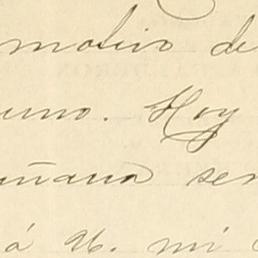 motivo de
uno. Hoy
añana ser
á V. mi